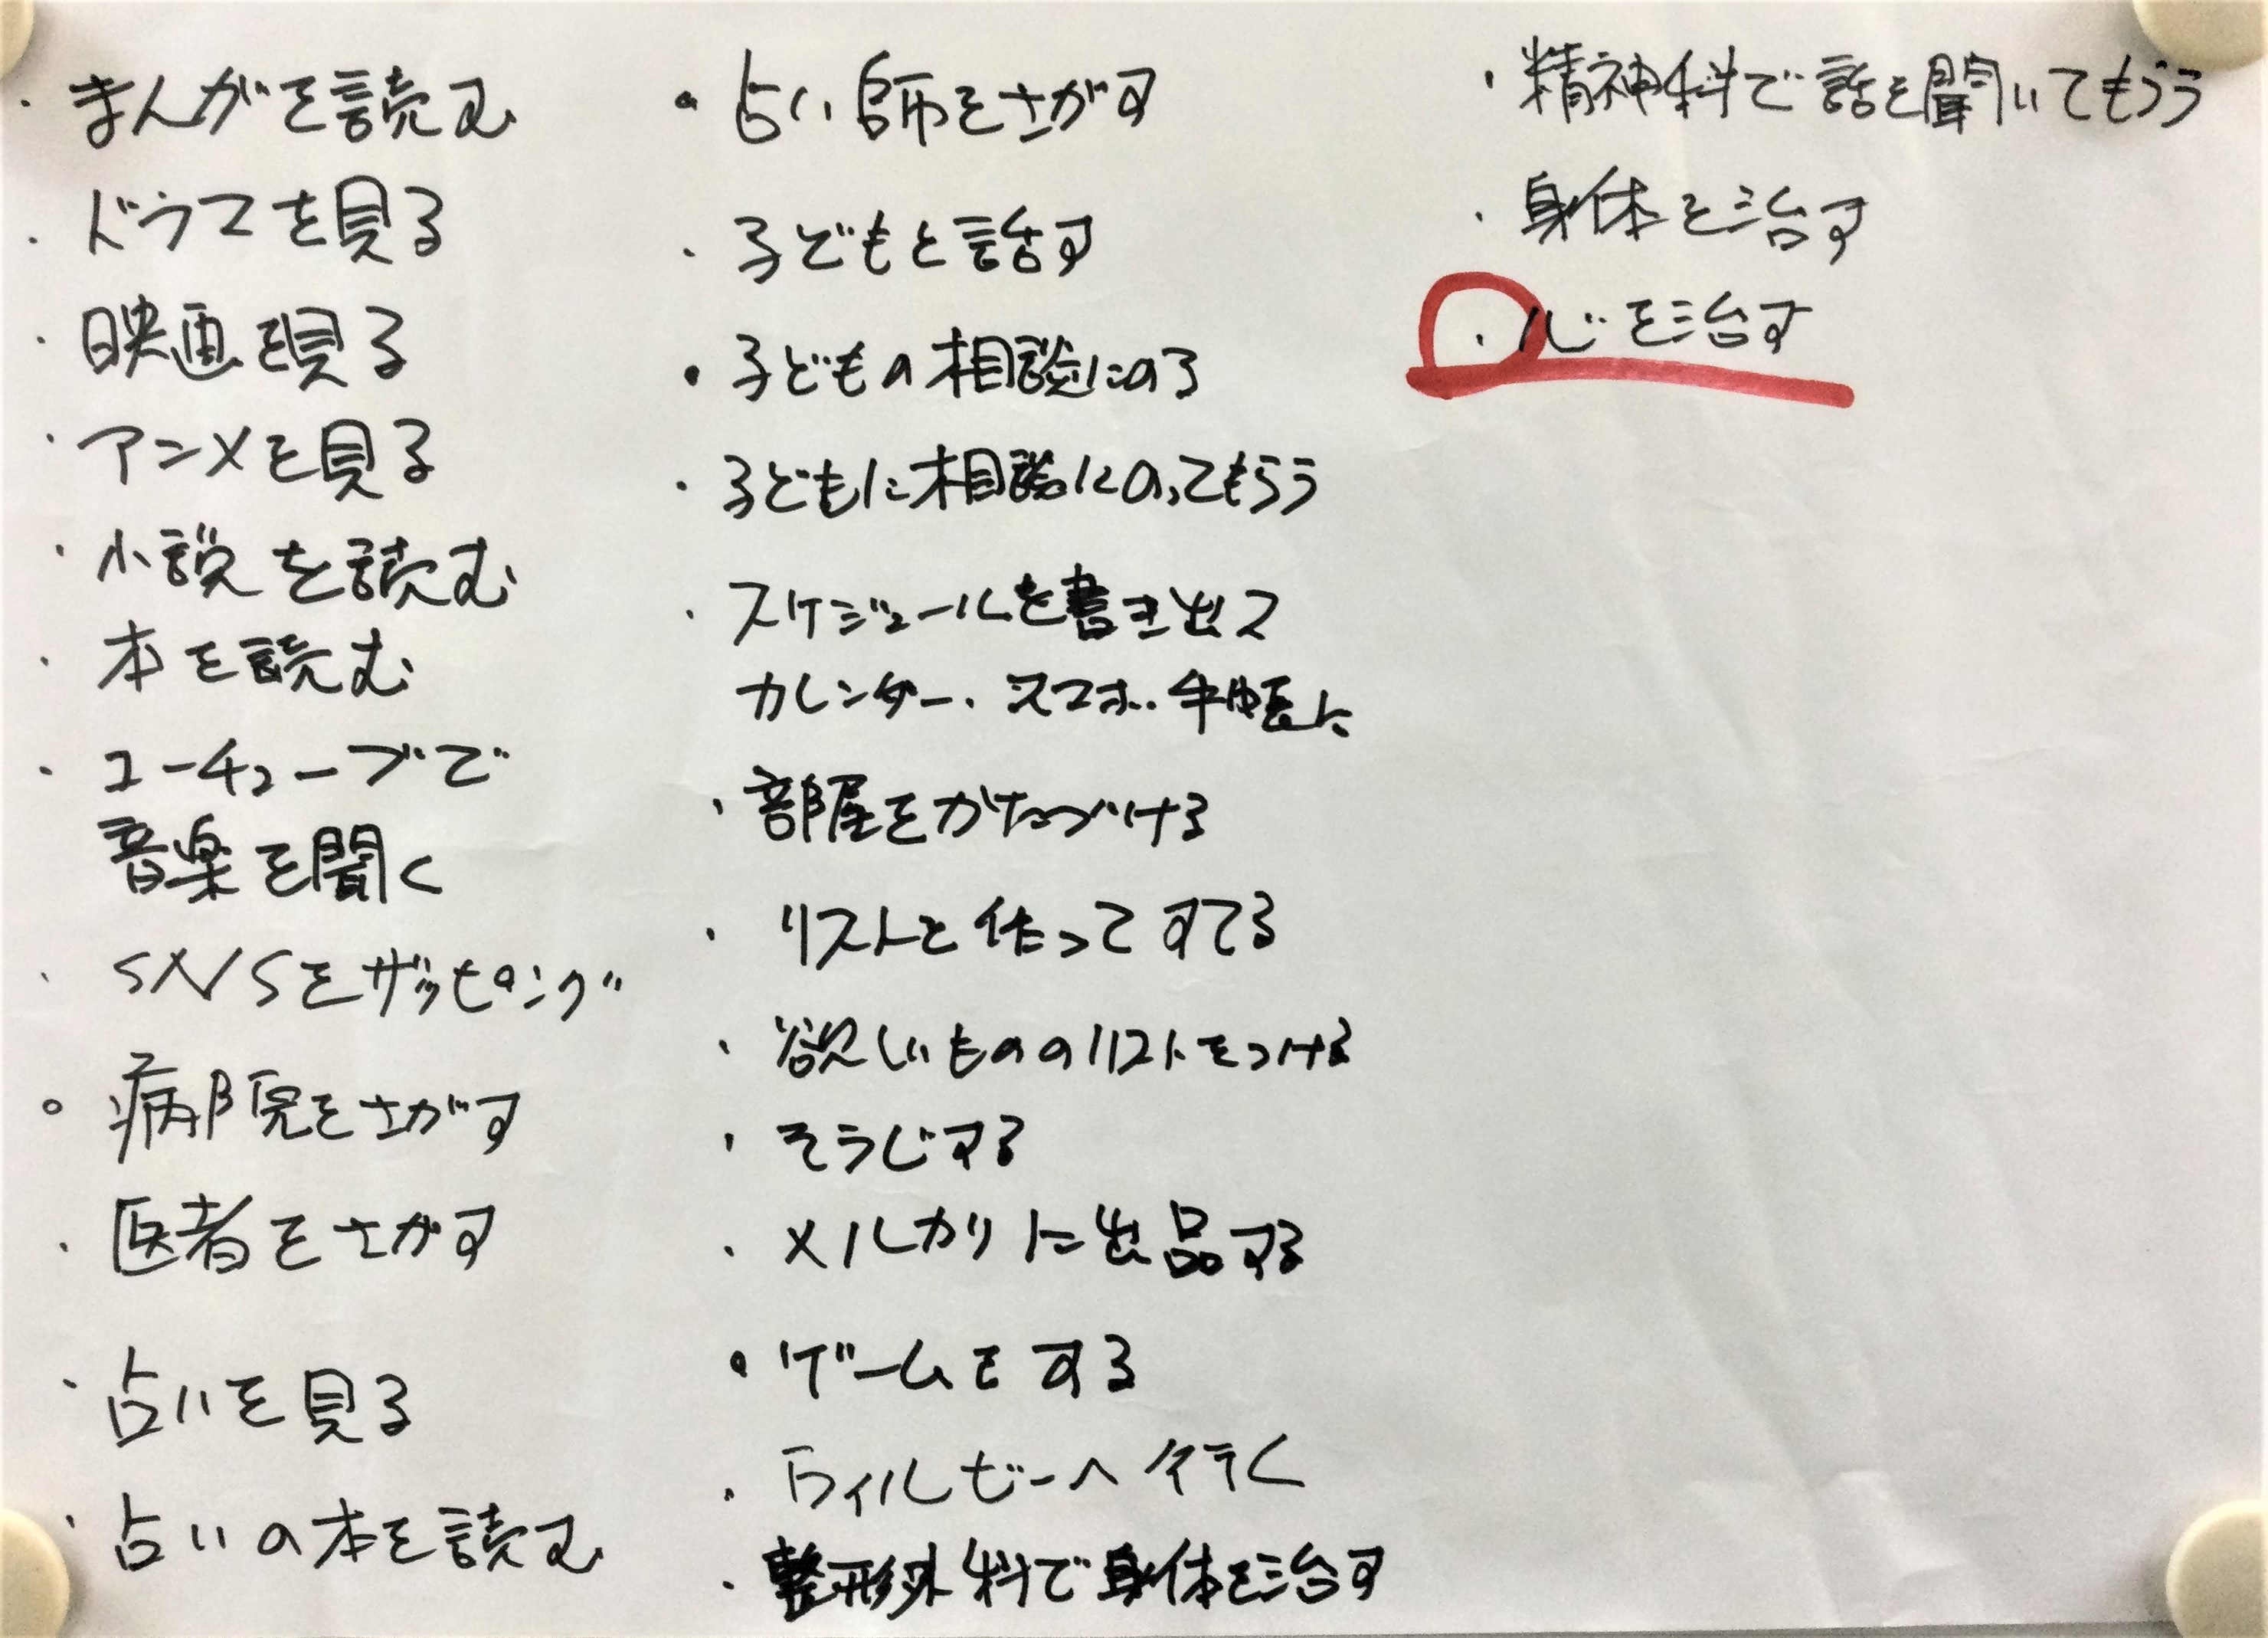 ・まんがを読む
・ドラマを見る
・映画を見る
・アニメを見る
・小説を読む
・本を読む
・ユーチューブで
音楽を聞く
・SNSをザッピング
・病院をさがす
・医者をさがす
・占いを見る
・占いの本を読む
・占い師をさがす
・子どもと話す
・子どもの相談にのる
・子どもに相談にのってもらう
・スケジュールを書き出す
カレンダー、スマホ、手帳に
・部屋をかたづける
・リストを作ってすてる
・欲しいもののリストをつける
・そうじする
・メルカリに出品する
・ゲームをする
・ラィルビーへ行く
・整形外科で身体を治す
・精神科で話を聞いてもらう
・身体を治す
・心を治す